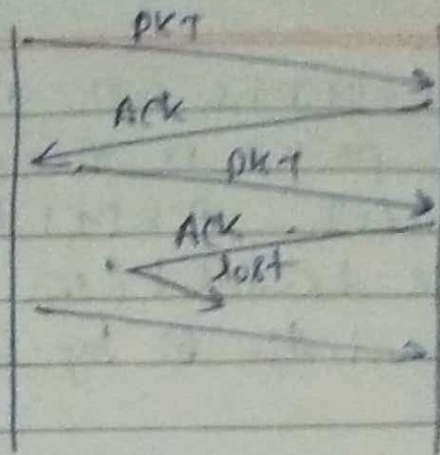 PKT
ACK
PKT
ACK
Lost